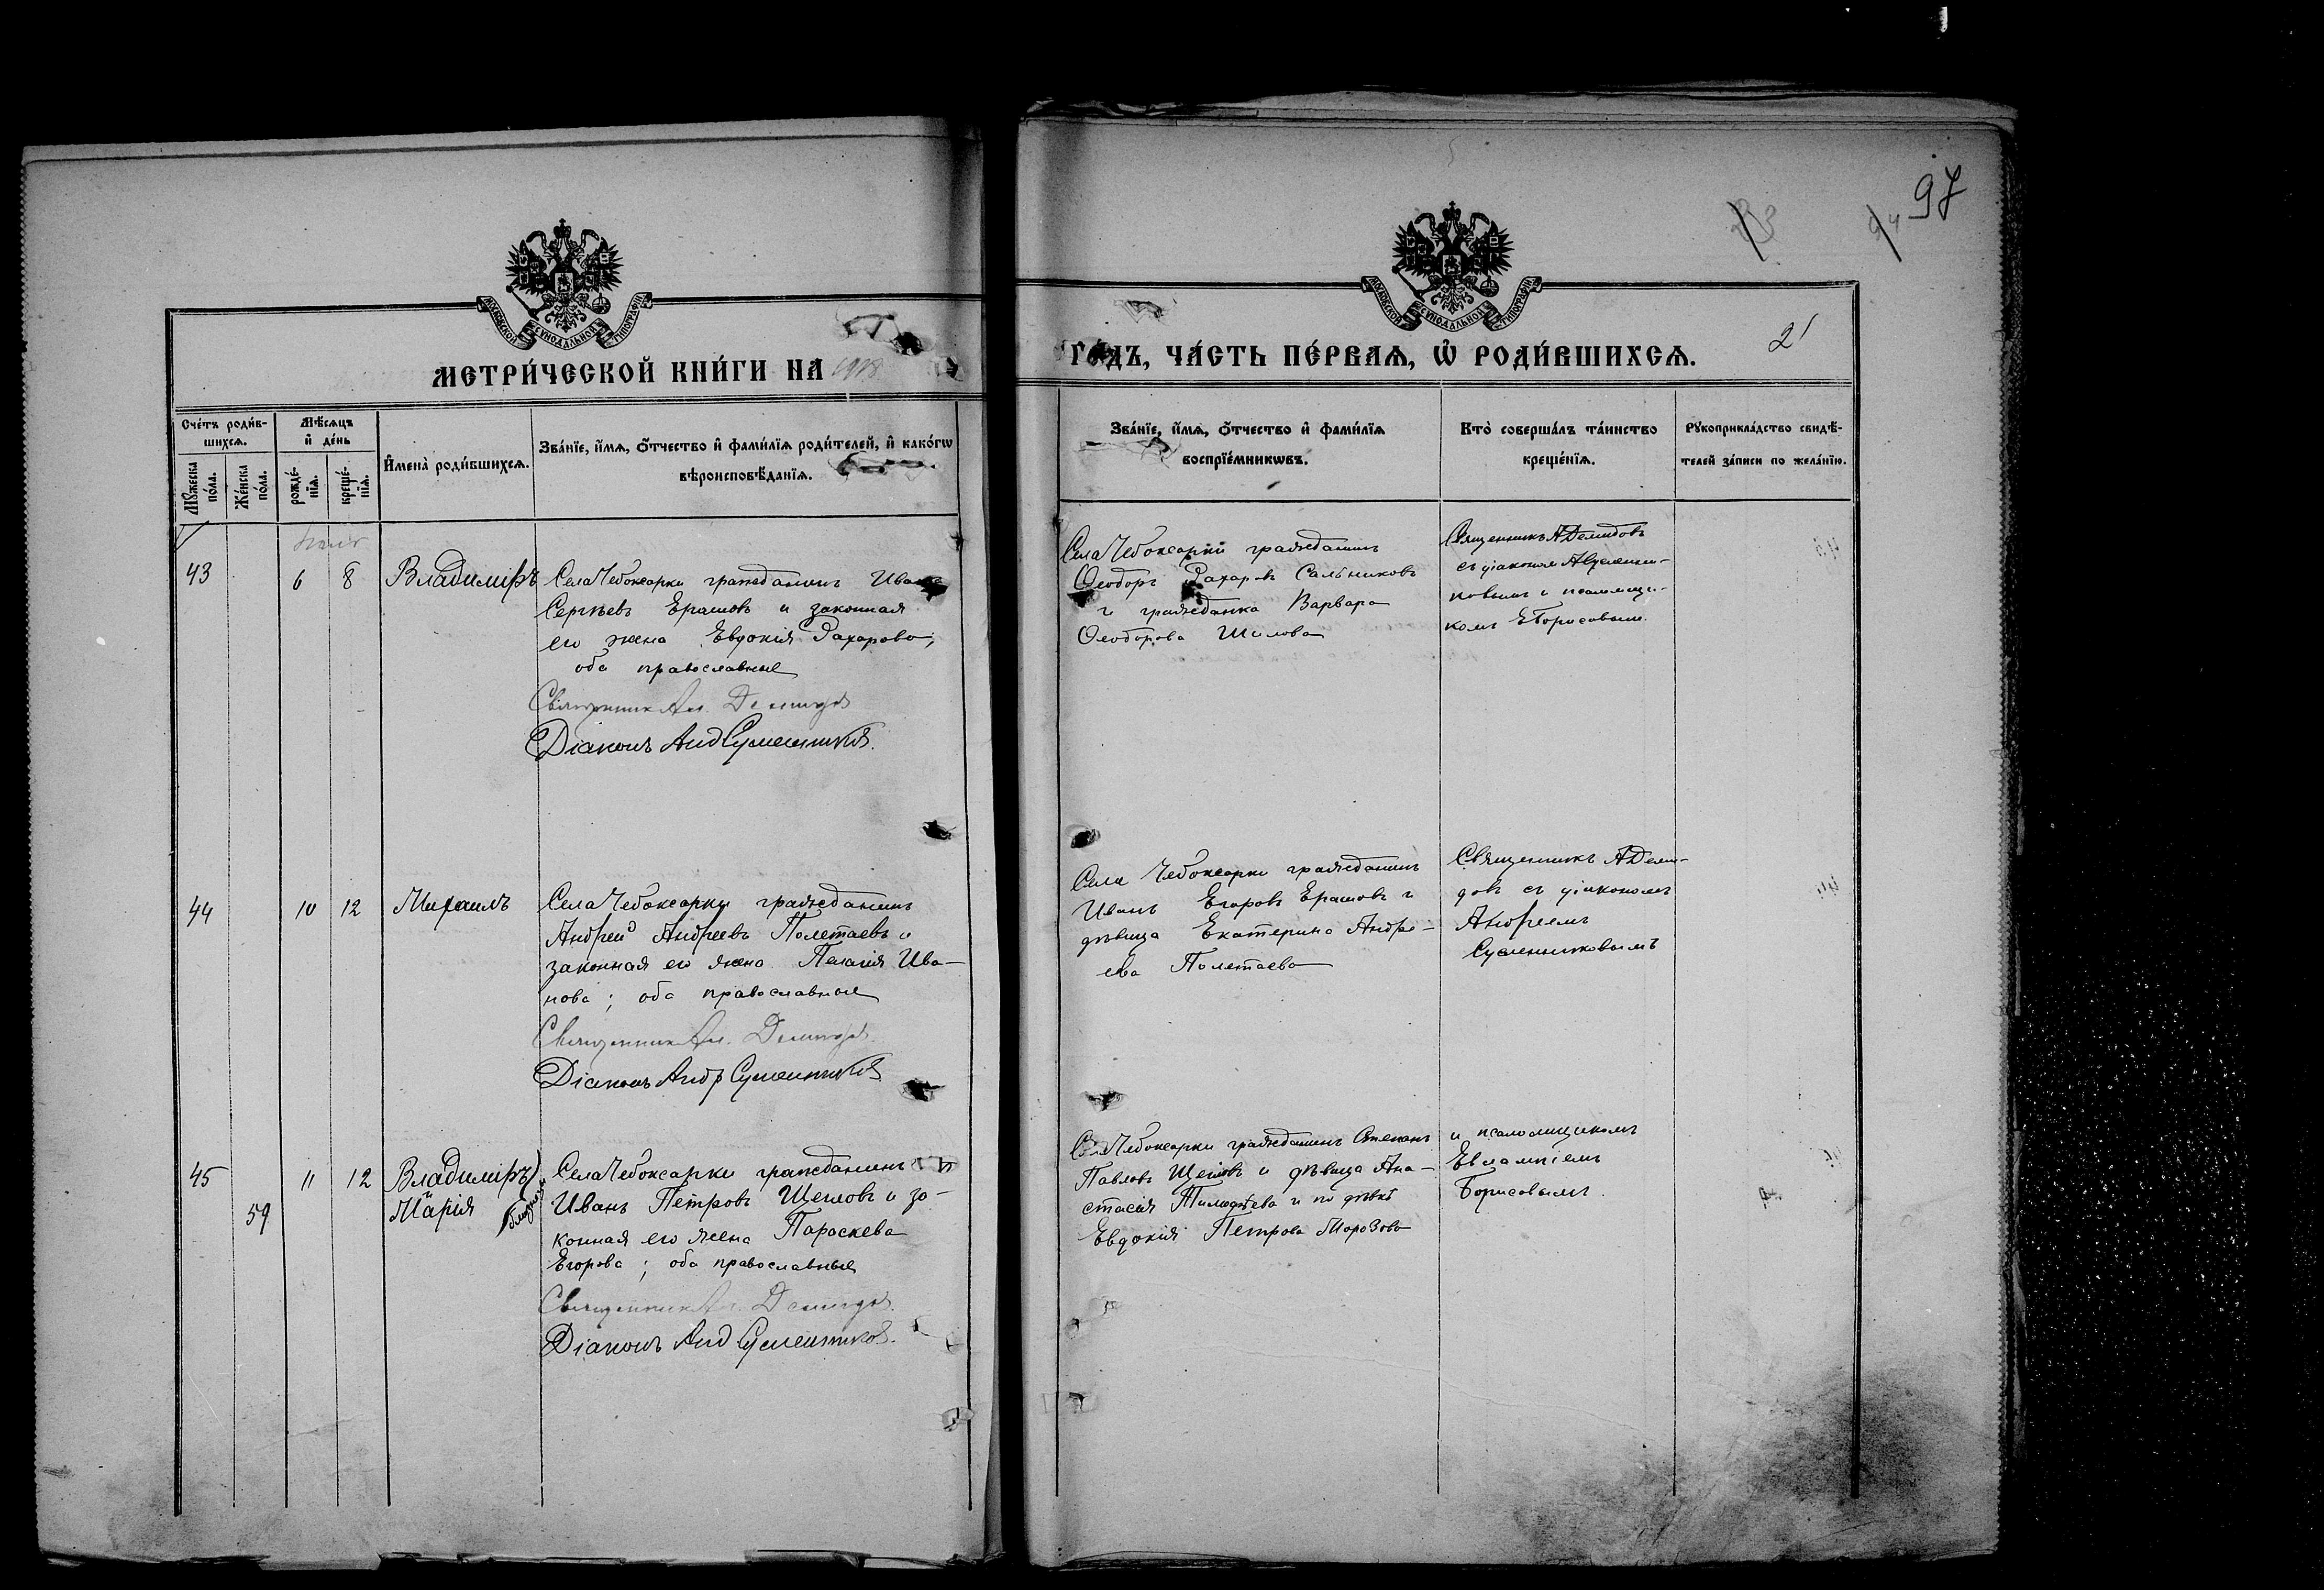 97
МОСКОВСКОЙ СѴНОДАЛЬНОЙ ТИПОГРАФІИ
МОСКОВСКОЙ СѴНОДАЛЬНОЙ ТИПОГРАФІИ
МЕТРИ́ЧЕСКОЙ КНИ́ГИ НА 1918
ГОДЪ, ЧА́СТЬ ПЕ́РВАѦ, Ѡ҆ РОДИ́ВШИХСѦ.
21
Сче́тъ роди́в-
шихсѧ.
Мꙋ́жеска
по́ла.
Же́нска
по́ла.
Мѣ́сѧцъ
и҆ де́нь
рожде́-
нїѧ.
креще́-
нїѧ.
И҆мена̀ роди́вшихсѧ.
Зва́нїе, и҆́мѧ, ѻ҆́тчество и҆ фами́лїѧ роди́телей, и҆ како́гѡ
вѣроисповѣ́данїѧ.
Зва́нїе, и҆́мѧ, ѻ҆́тчество и҆ фами́лїѧ
воспрїе́мникѡвъ.
Кто̀ соверша́лъ та́инство
креще́нїѧ.
Рꙋкоприкла́дство свидѣ́-
телей за́писи по жела́нїю.
43
6
8
Владиміръ
Села Чебоксарки гражданинъ Иванъ
Сергѣевъ Ерашовъ и законная
его жена Евдокія Захарова,
оба православные
Священник Ал. Демидов
Діаконъ Анд Сумешников.
Села Чебоксарки гражданинъ
Ѳеодоръ Захаровъ Сальниковъ
и гражданка Варвара
Ѳеодорова Шилова
Священникъ А Демидовъ
съ діакон
и псаломщи-
комъ Е Борисовым.
44
10
12
Михаилъ
Села Чебоксарки гражданинъ
Андрей Андреевъ Полетаевъ и
законная его жена Пелагія Ива-
нова; оба православные
Священник Ал. Демидов
Діаконъ Андр Сумешников
Села Чебоксарки гражданинъ
Иванъ Егоровъ Ерашовъ и
дѣвица Екатерина Андре-
ева Полетаева
Священникъ А Деми-
довъ съ діакономъ
Андреемъ
45
59
11
12
Владиміръ
Марія
близнецы
Села Чебоксарки гражданинъ
Иванъ Петровъ Щегловъ и за-
конная его жена Параскева
Егорова; оба православные
Священник Ал. Демидов.
Діаконъ Анд Сумешников.
Села Чебоксарки гражданинъ Степанъ
Павловъ Щегловъ и дѣвица Ана-
стасія Тимофѣева и
Евдокія Петрова Морозова
и псаломщикомъ
Евлампіемъ
Борисовымъ.